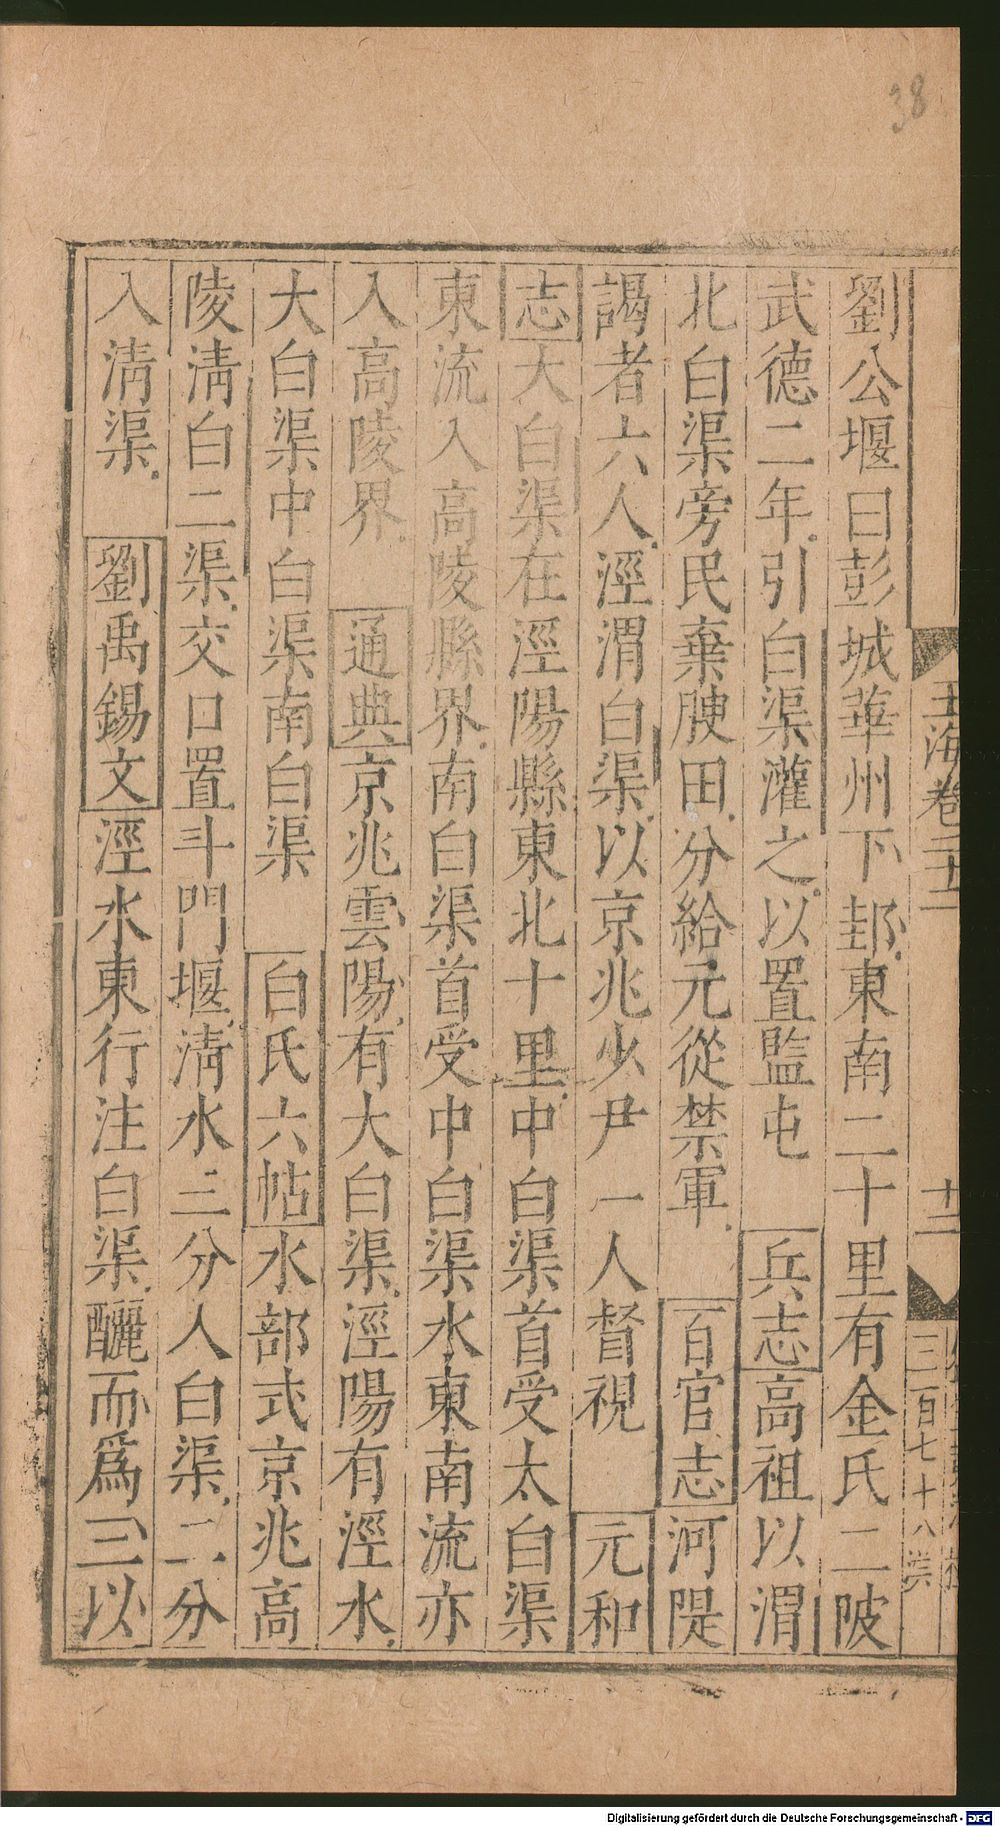 38
劉公堰曰彭城華州下邽東南二十里有金氏二陂
武德二年引白渠灌之以置監屯 兵志高祖以渭
北白渠旁民棄腴田分給元從禁軍 百官志河隄
謁者六人涇渭白渠以京兆少尹一人督視 元和
志大白渠在涇陽縣東北十里中白渠首受太白渠
東流入高陵縣界南白渠首受中白渠水東南流亦
入高陵界 通典京兆雲陽有大白渠涇陽有涇水
大白渠中白渠南白渠 白氏六帖水部式京兆高
陵清白二渠交口置斗門堰清水三分入白渠二分
入清渠 劉禹錫文涇水東行注白渠釃而爲三以
玉海卷二十二
十二
三百七十八
Digitalisierung gefördert durch die Deutsche Forschungsgemeinschaft - DFG